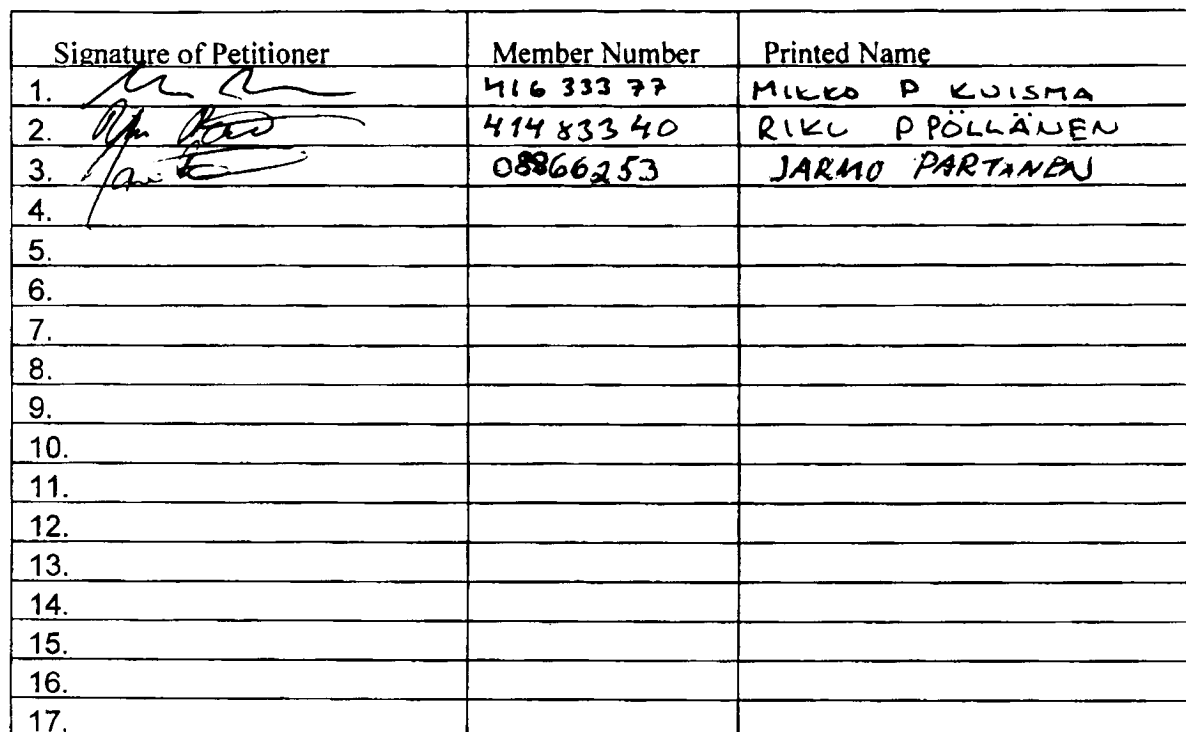 Signature of Petitioner Member Number Printed Name
1. 416 333 77 MIKKO P KUISMA
2. 414 833 40 RIKU P PÖLLÄNEN
3. 08866253 JARMO PARTANEN
4.
5.
6.
7.
8.
9.
10.
11.
12.
13.
14.
15.
16.
17.